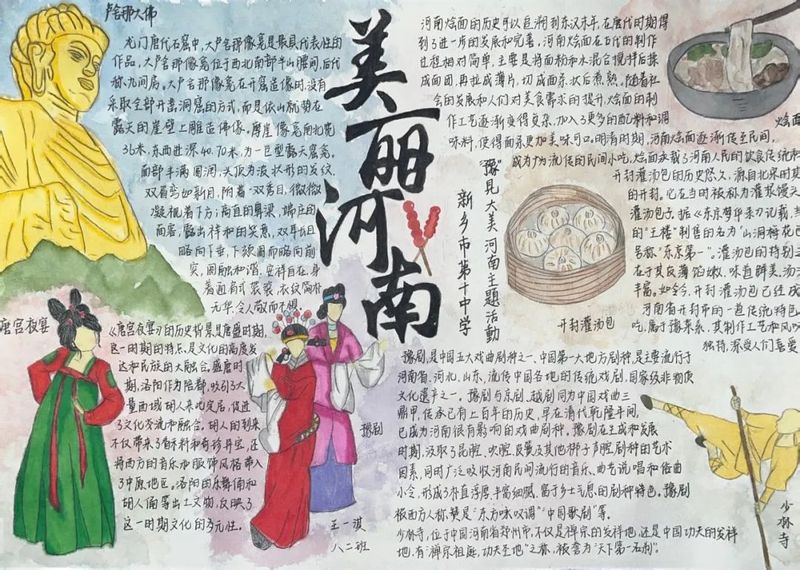 卢舍那大佛
龙门唐代石窟中，大卢舍那像龛是最具代表性的
作品，大卢舍那像龛位于西北南部半山腰间，后代
称九间房。大卢舍那像龛在开窟造像时，没有
采取全部开凿洞窟的方式，而是依山就势在
露天的崖壁上雕造佛像。摩崖像龛南北宽
36米，东西进深40.70米，为一巨型露天窟龛。
面部丰满圆润，头顶为波状形的发纹，
双眉弯如新月，附着一双秀目，微微
凝视着下方；高直的鼻梁，端庄的
面容，露出祥和的笑意，双耳
略向下垂，下颏圆而略向前
突，圆融和谐，安祥自在，身
着通肩式袈裟，衣纹简朴
无华，令人敬而不惧。
美丽河南
新乡市第十中学
“豫”见大美河南主题活動
河南烩面的历史可以追溯到东汉末年，在唐代时期得
到了进一步的发展和完善，河南烩面在古代的制作
过程相对简单，主要是将面粉和水混合搅拌后揉
成面团，再拉成薄片，切成面条状后煮熟，随着社
会的发展和人们对美食需求的提升，烩面的制
作工艺逐渐变得复杂，加入了更多的配料和调
味料，使得面条更加美味可口。明清时期，河南烩面逐渐传至民间，
成为广为流传的民间小吃，烩面承载了河南人民的饮食传统和
烩面
开封灌汤包的历史悠久，源自北宋时期
的开封，它在当时被称为灌浆馒头
灌汤包子，据《东京梦华录》记载，当
的“王楼”制售的名为“山洞梅花包
号称“东京第一”。灌汤包的特别之
在于其皮薄馅嫩，味道鲜美，汤汁
丰盈，如今，开封灌汤包已经成
河南省开封市的一道传统特色
吃，属于豫菜系，其制作工艺和风味
独特，深受人们喜爱
开封灌汤包
唐宫夜宴
《唐宫夜宴》的历史背景是唐盛时期，
这一时期的特点是文化的高度发
达和民族的大融合，盛唐时
期，洛阳作为陪都，吸引了大
量西域胡人来此定居，促进
了文化交流和融合，胡人的到来
不仅带来了香料和奇珍异宝，还
将西方的音乐和服饰风格带入
了中原地区，洛阳的乐舞俑和
胡人俑等出土文物，反映了
这一时期文化的多元性。
豫剧
王一琪
八二班
豫剧是中国五大戏曲剧种之一、中国第一大地方剧种，是主要流行于
河南省、河北、山东，流传中国各地的传统戏剧，国家级非物质
文化遗产之一。豫剧与京剧、越剧同为中国戏曲三
鼎甲，传承已有上百年的历史，早在清代乾隆年间，
已成为河南很有影响的戏曲剧种。豫剧在生成和发展
时期，汲取了昆腔、吹腔、皮簧及其他梆子声腔剧种的艺术
因素，同时广泛吸收河南民间流行的音乐、曲艺说唱和俗曲
小令，形成了朴直淳厚、丰富细腻，富于乡土气息的剧种特色，豫剧
被西方人称赞是“东方咏叹调”“中国歌剧”等。
少林寺，位于中国河南省郑州市，不仅是禅宗的发祥地，还是中国功夫的发祥
地，有“禅宗祖庭，功夫圣地”之称，被誉为“天下第一名刹”。
少林寺